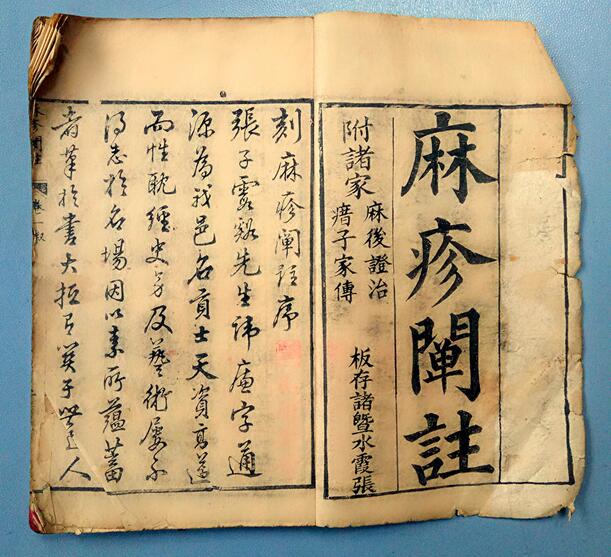 麻疹闡註
附諸家
麻後證治
瘄子家傳
板存諸暨水霞張
刻麻疹闡註序
張子霞谿先生諱廉字通
源為我邑名貢士天資高邁
而性耽經史旁及藝術屢不
得志於名場因以素所蘊蓄
者筆於書大抵有關乎世道人